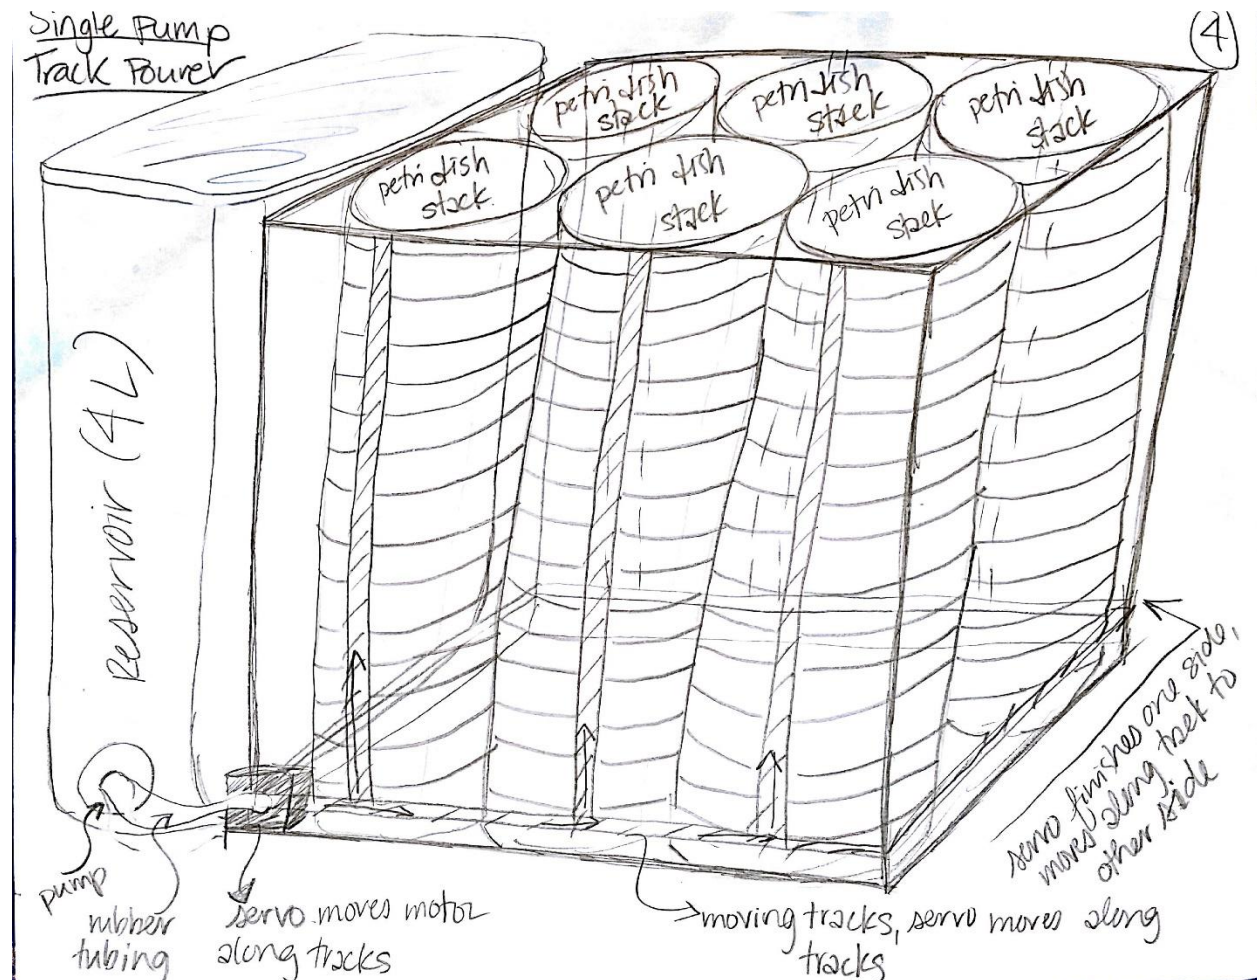 Single Pump
Track Pourer
4
petri dish
stack
petri dish
stack
petri dish
stack
petri dish
stack
petri dish
stack
petri dish
stack
Reservoir (4L)
pump
rubber
tubing
servo moves motor
along tracks
moving tracks, servo moves along
tracks
servo finishes one side,
moves along track to
other side